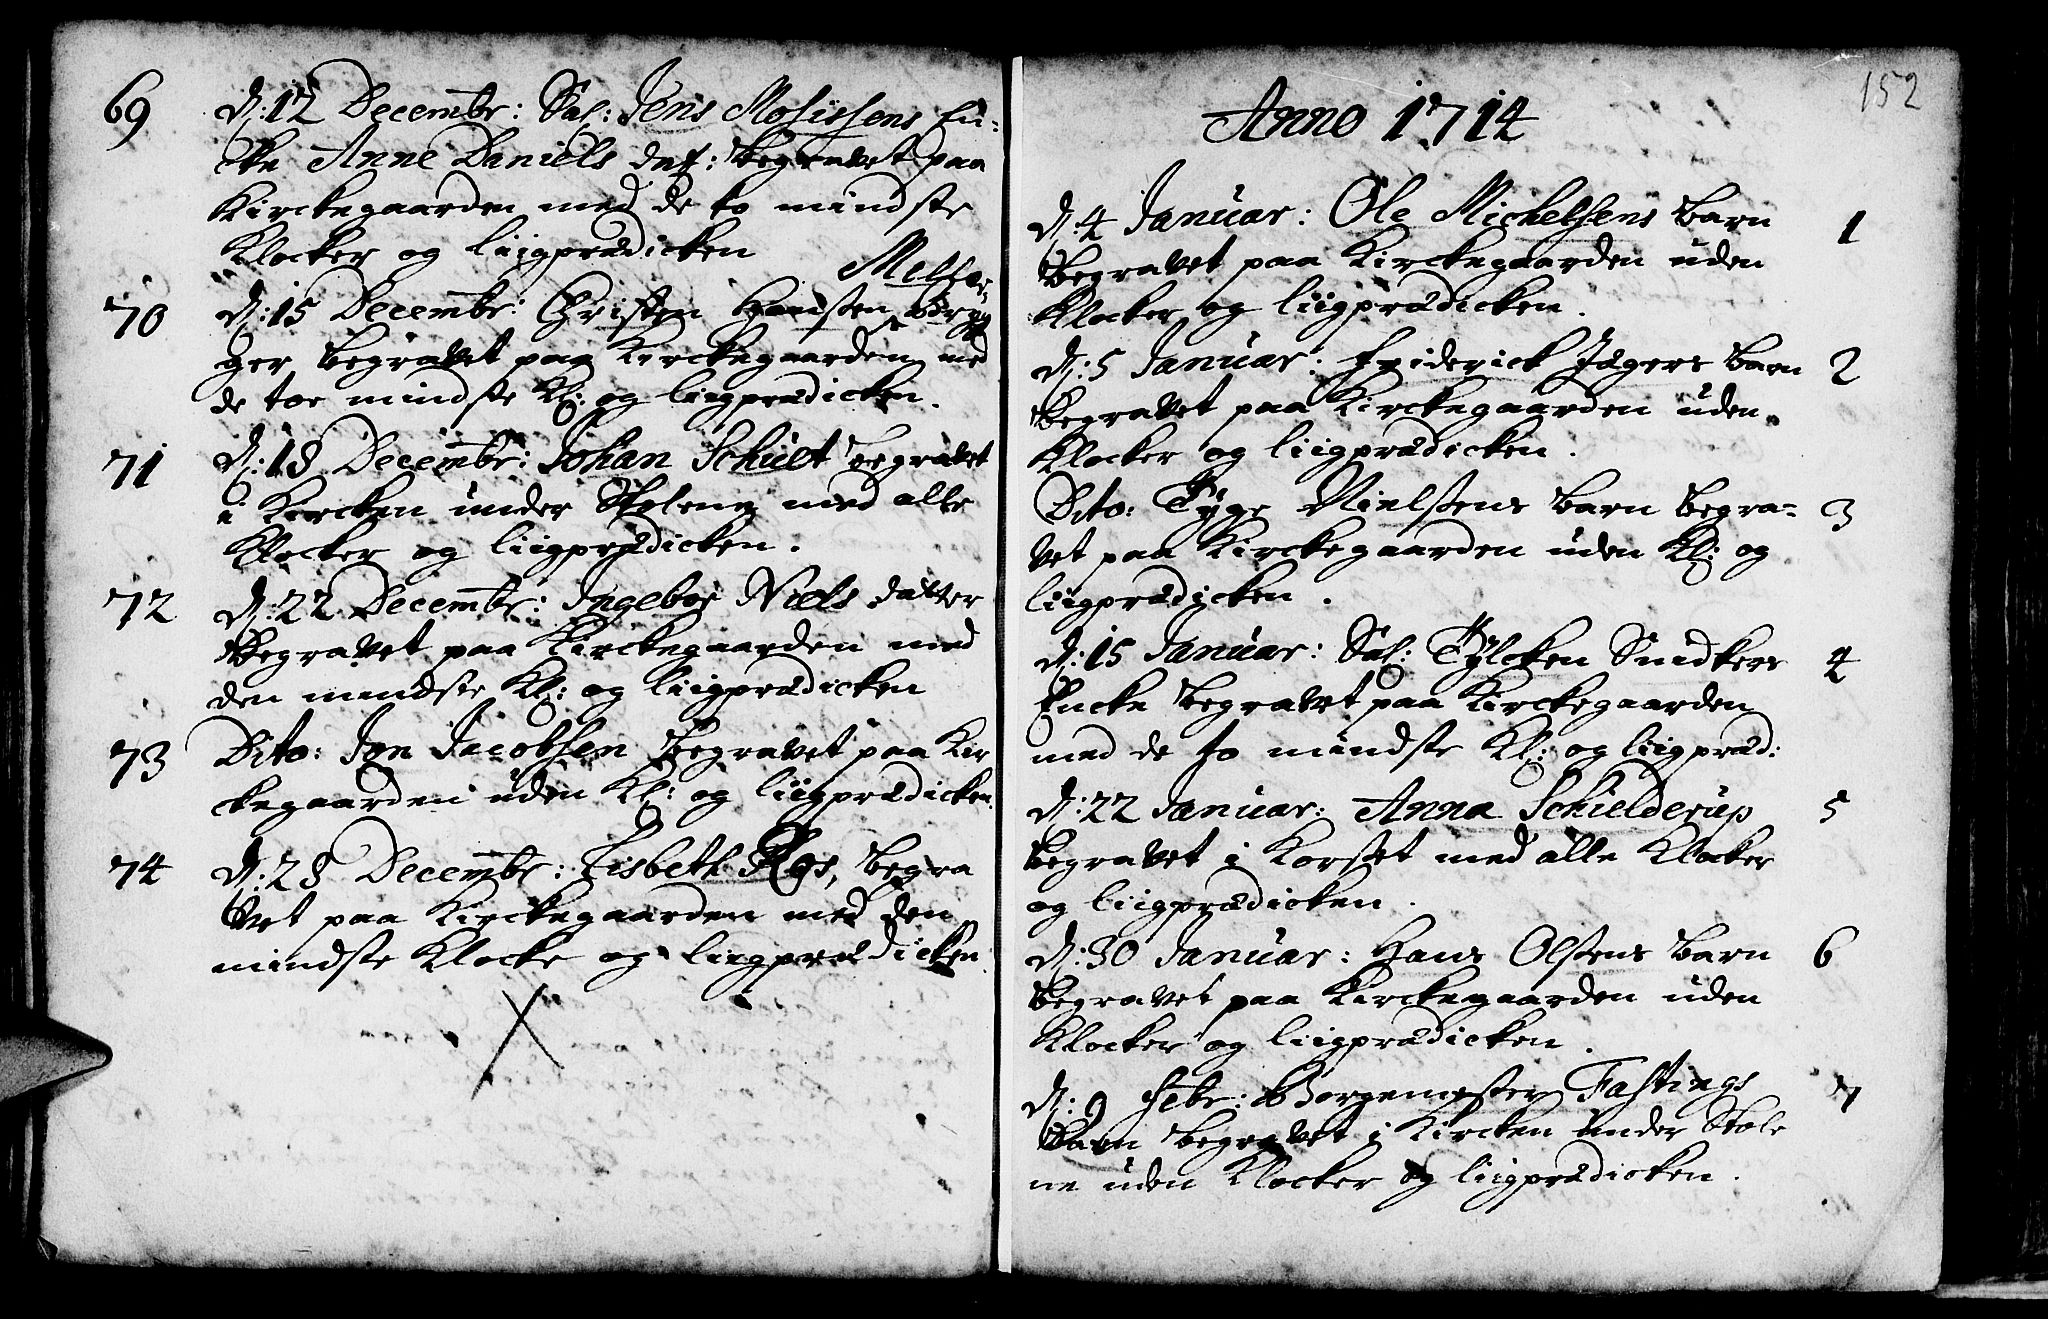 69 D: 12 Decembr: Sal: Jens Mosissens En-
cke Anne Daniels dat: begravet paa
Kirckegaarden med de to mindste
Klocker og liigprædicken
70 D: 15 Decembr: Christen Hansen
ger begravet paa Kirckegaarden med
de toe mindste Kl: og liigprædicken.
71 D: 18 Decembr: Johan Schult begravet
i Kircken under Stolene med alle
Klocker og liigprædicken.
72 D: 22 Decembr: Ingebor Niels datter
begravet paa Kirckegaarden med
den mindste Kl: og liigprædicken
73 Dito: Jon Jacobsen begravet paa Kir
ckegaarden uden Kl: og liigprædicken.
74 D: 28 Decembr: Lisbeth begra
vet paa Kirckegaarden med den
mindste Klocke og liigprædicken.
152
Anno 1714
D: 4 Januar: Ole Michelsens barn 1
begravet paa Kirckegaarden uden
Klocker og liigprædicken.
D: 5 Januar: Friderick Jægers barn 2
begravet paa Kirckegaarden uden
Klocker og liigprædicken.
Dito: Tyge Nielsens barn begra- 3
vet paa Kirckegaarden uden Kl: og
liigprædicken.
D: 15 Januar: Sal: Tylcken Snidkers 4
Encke begravet paa Kirckegaarden
med de to mindste Kl: og liigpræd:
D: 22 Januar: Anna Schielderup 5
begravet i Korset med alle Klocker
og liigprædicken.
D: 30 Januar: Hans Olsens barn 6
begravet paa Kirckegaarden uden
Klocker og liigprædicken.
D: 9 Febr: Borgemester Fastings 7
barn begravet i Kircken under Stole
ne uden Klocker og liigprædicken.